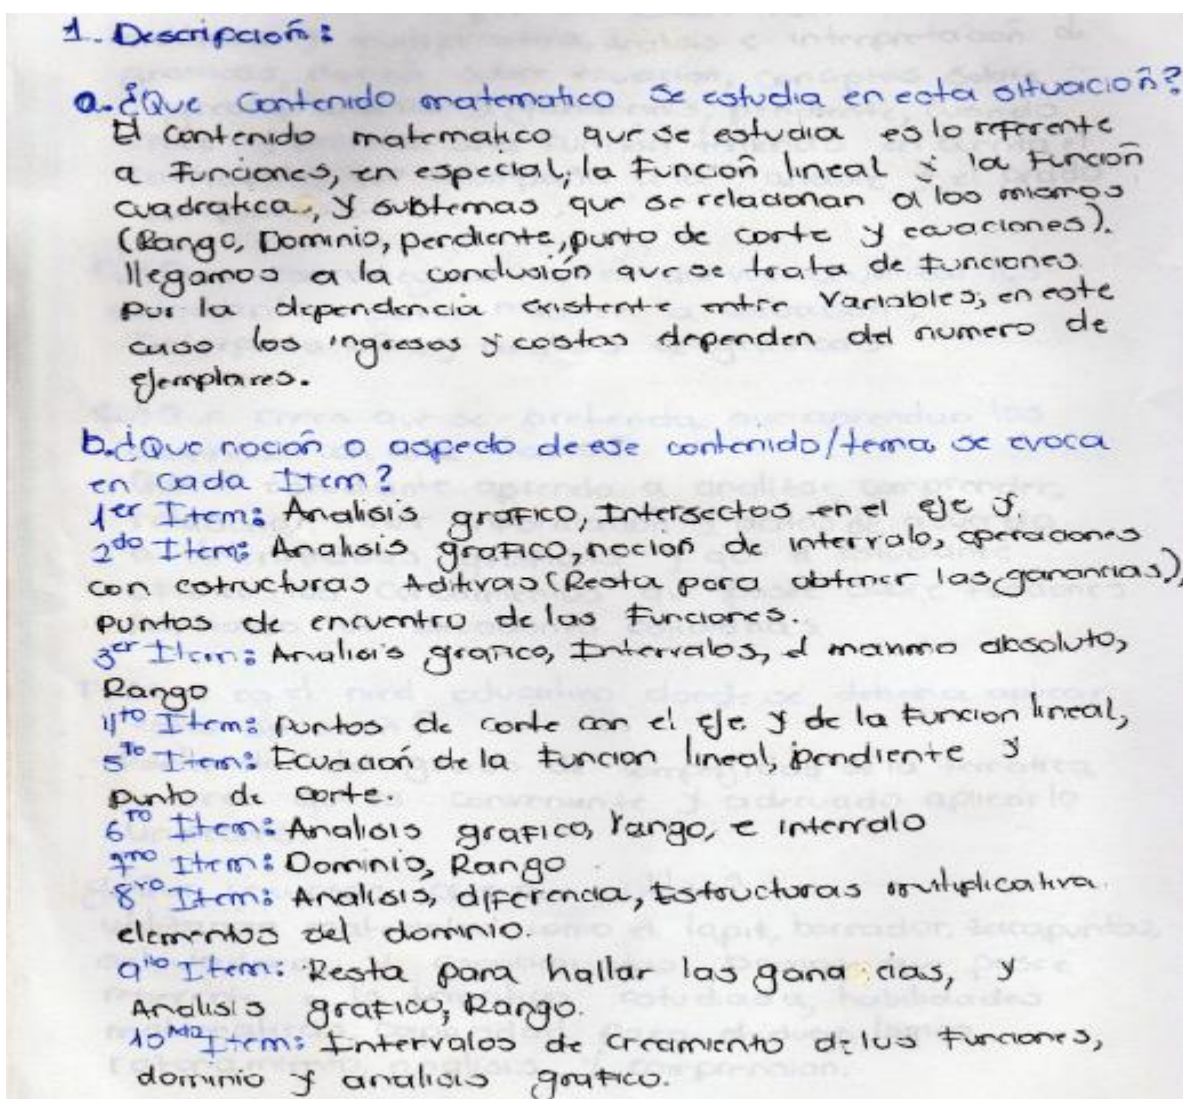 1. Descripcioñ:
a. ¿Que contenido matematico se estudia en esta situacioñ?
El contenido matematico que se estudia es lo referente
a Funciones, en especial, la Funcioñ lineal y la Funcioñ
cuadratica, y subtemas que se relacionan a los mismos
(Rango, Dominio, pendiente, punto de corte y ecuaciones).
llegamos a la conclusión que se trata de Funciones.
Por la dependencia existente entre Variables, en este
caso los ingresos y costos dependen del numero de
ejemplares.
b. ¿Que nocioñ o aspecto de ese contenido/tema se evoca
en cada Item?
1er Item: Analisis grafico, Intersectos en el eje y.
2do Item: Analisis grafico, nocioñ de intervalo, operaciones
con estructuras Aditivas (Resta para obtener las ganancias),
puntos de encuentro de las Funciones.
3er Item: Analisis grafico, Intervalos, el maximo absoluto,
Rango
4to Item: puntos de corte con el eje y de la Funcion lineal,
5to Item: Ecuación de la Funcion lineal, pendiente y
punto de corte.
6to Item: Analisis grafico, rango, e intervalo
7mo Item: Dominio, Rango
8vo Item: Analisis, diferencia, Estructuras multiplicativa.
elementos del dominio.
9no Item: Resta para hallar las gana cias, y
Analisis grafico, Rango.
10Mo Item: Intervalos de crecimiento de las Funciones,
dominio y analisis grafico.